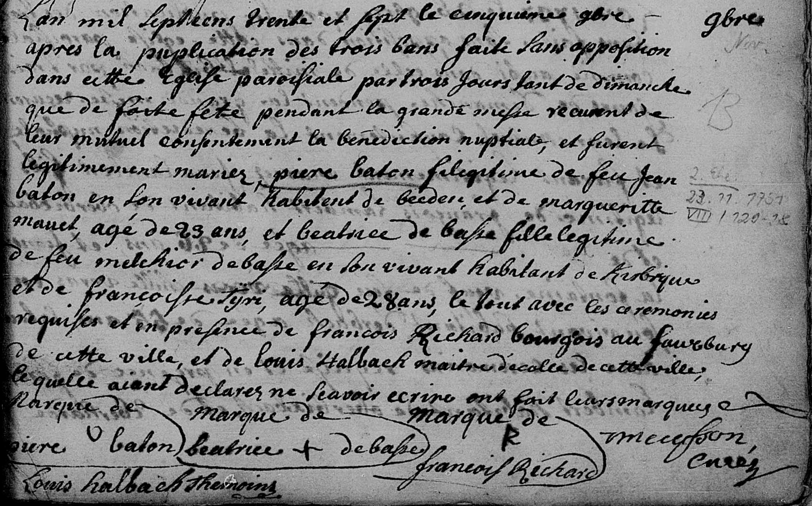 L'an mil septcens trente et sept le cinquieme 9bre
9bre
Nov.
apres la puplication des trois bans faite sans opposition
dans cette Eglise paroisiale par trois Jours tant de dimanche
13
que de faite fete pendant la grande messe recurent de
leur mutuel consentement la benediction nuptiale, et furent
legitimement mariez, piere baton fi legitime de feu Jean
2. Ehe
baton en son vivant habitent de beeden, et de margueritte
23. 11. 1751
VIII / 120-18
mauet, agé de 23 ans, et beatrice de basse fille legitime
de feu melchior de basse en son vivant habitant de
et de francoisse tyri, agé de 28 ans, le tout avec les ceremonies
requises et en presence de francois Richard bourgois au fauxburg
de cette ville, et de Louis Halbach maitre décolle de cette ville,
lequelle aiant declarez ne scavoir ecrire ont fait leurs marques
Marque de marque de marque de
piere baton beatrice + de basse R
francois Richard
curéz
Louis halbach themoins